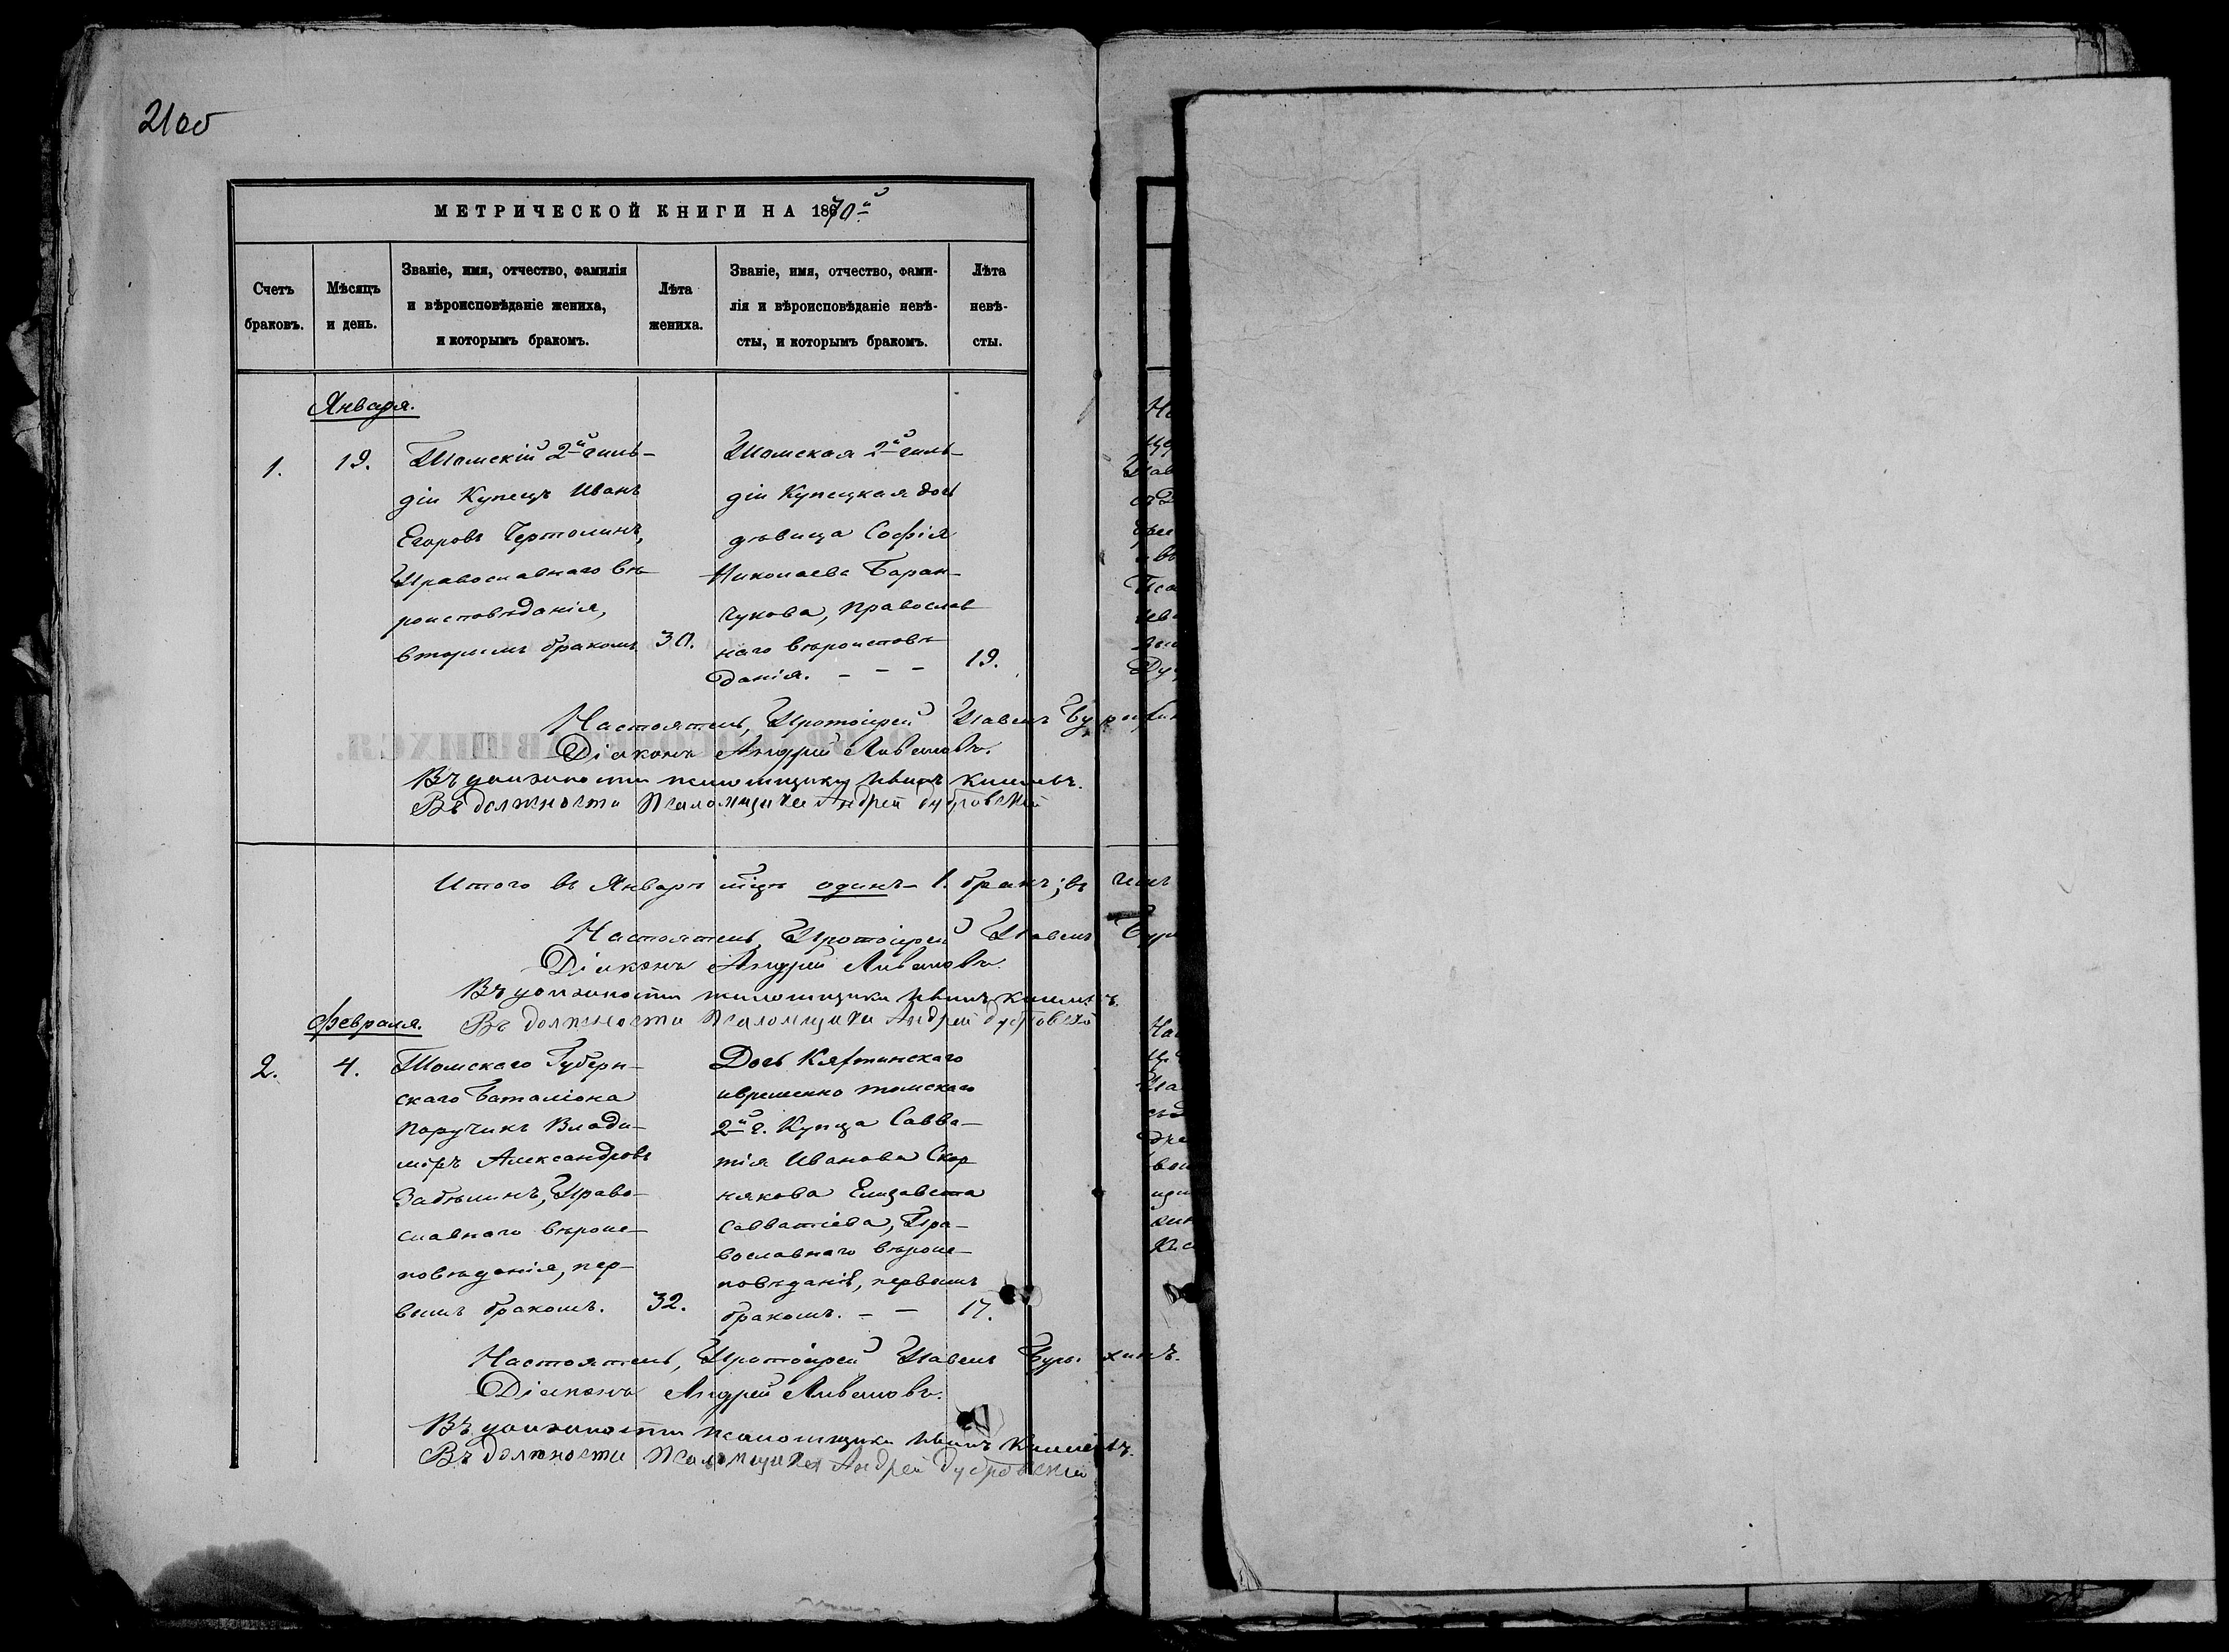 21об
МЕТРИЧЕСКОЙ КНИГИ НА 1870й
Счетъ браковъ.
Мѣсяцъ и день.
Званіе, имя, отчество, фамилія и вѣроисповѣданіе жениха, и которымъ бракомъ.
Лѣта жениха.
Званіе, имя, отчество, фами-лія и вѣроисповѣданіе невѣ-сты, и которымъ бракомъ.
Лѣта невѣ-сты.
Января.
1.
19.
Томскій 2й гиль-
діи Купецъ Иванъ
Егоровъ Чертолинъ,
Православнаго вѣ-
роисповѣданія,
вторымъ бракомъ
30.
Томская 2й гиль-
діи Купецкая дочь
дѣвица Софія
Николаева Баран-
чукова, православ
наго вѣроисповѣ
данія. - - -
19.
Настоятель, Протоіерей Павелъ
Діаконъ Андрей Ливановъ.
Въ должности псаломщика Иванъ
Въ должности Псаломщика Андрей Дубровскій
Итого въ Январѣ мцѣ одинъ - 1. бракъ; въ
Настоятель, Протоіерей Павелъ
Діаконъ Андрей Ливановъ.
Въ должности псаломщика Иванъ
Февраля.
Въ должности Псаломщика Андрей Дубровскій
2.
4.
Томскаго Губерн-
скаго Баталіона
Поручикъ Влади-
міръ Александровъ
Забѣлинъ, Право-
славнаго вѣроис-
повѣданія, пер-
вымъ бракомъ.
32.
Дочь Кяхтинскаго
и временно томскаго
2й г. Купца Савва-
тія Иванова Скор
някова Елизавета
Савватіева, Пра-
вославнаго вѣроис-
повѣданія, первымъ
бракомъ. - -
17.
Настоятель, Протоіерей Павелъ
Діаконъ Андрей Ливановъ.
Въ должности псаломщика Иванъ
Въ должности Псаломщика Андрей Дубровскій